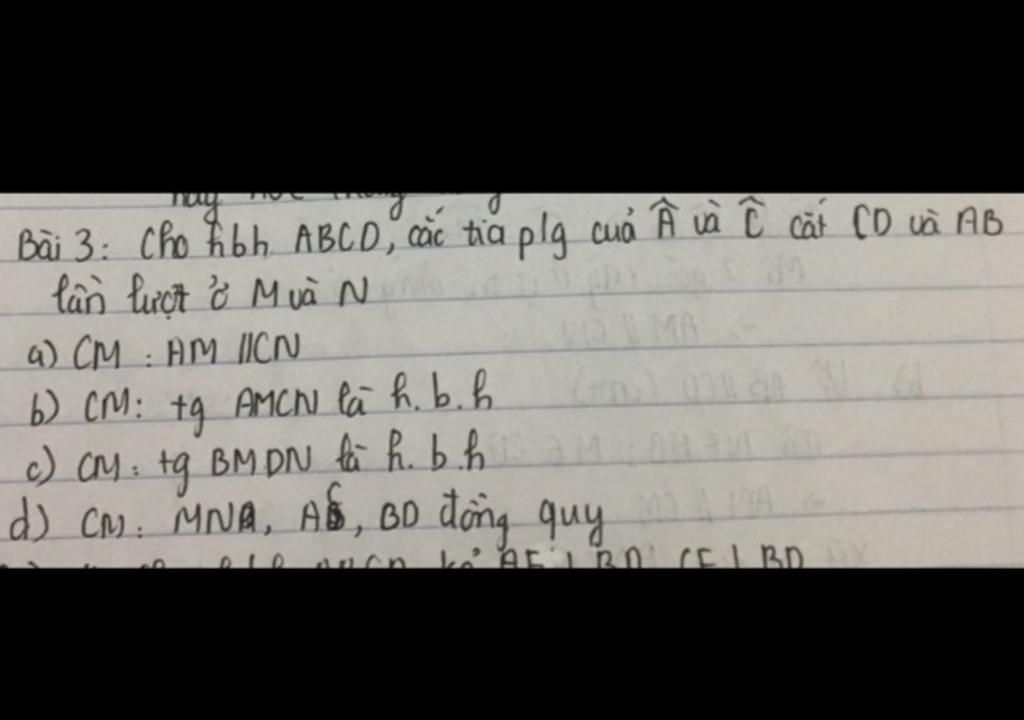 Bài 3: Cho hbh ABCD, các tia plg cuả Â và Ĉ cắt CD và AB
lần lượt ở M và N
a) CM : AM // CN
b) CM: tg AMCN là h.b.h
c) CM: tg BMDN là h.b.h
d) CM: MN, AC, BD đồng quy
kẻ AE ⊥ BD, CF ⊥ BD